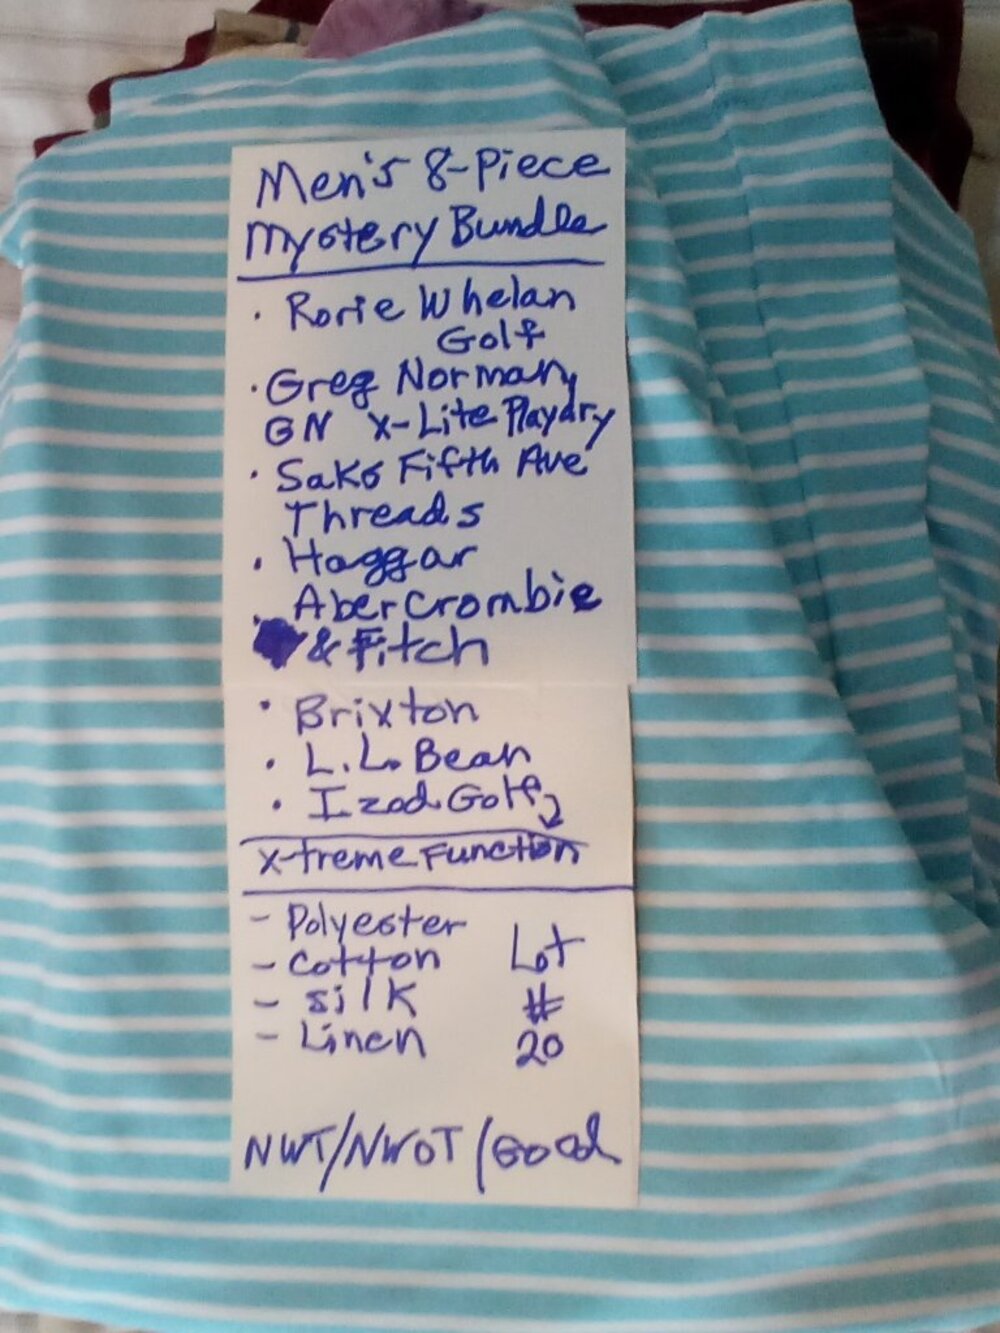 Men's 8-Piece
Mystery Bundle
· Rorie Whelan
Golf
· Greg Norman
GN X-Lite Playdry
· Saks Fifth Ave
Threads
· Haggar
· Abercrombie
& Fitch
· Brixton
· L.L. Bean
· Izod Golf
X-treme Function
- Polyester
- Cotton
- Silk
- Linen
Lot
#
20
NWT/NWOT/Good